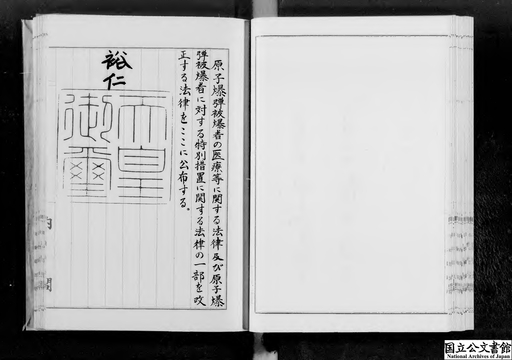 原子爆弾被爆者の医療等に関する法律及び原子爆
弾被爆者に対する特別措置に関する法律の一部を改
正する法律をここに公布する。
裕仁
天皇
御璽
国立公文書館
National Archives of Japan